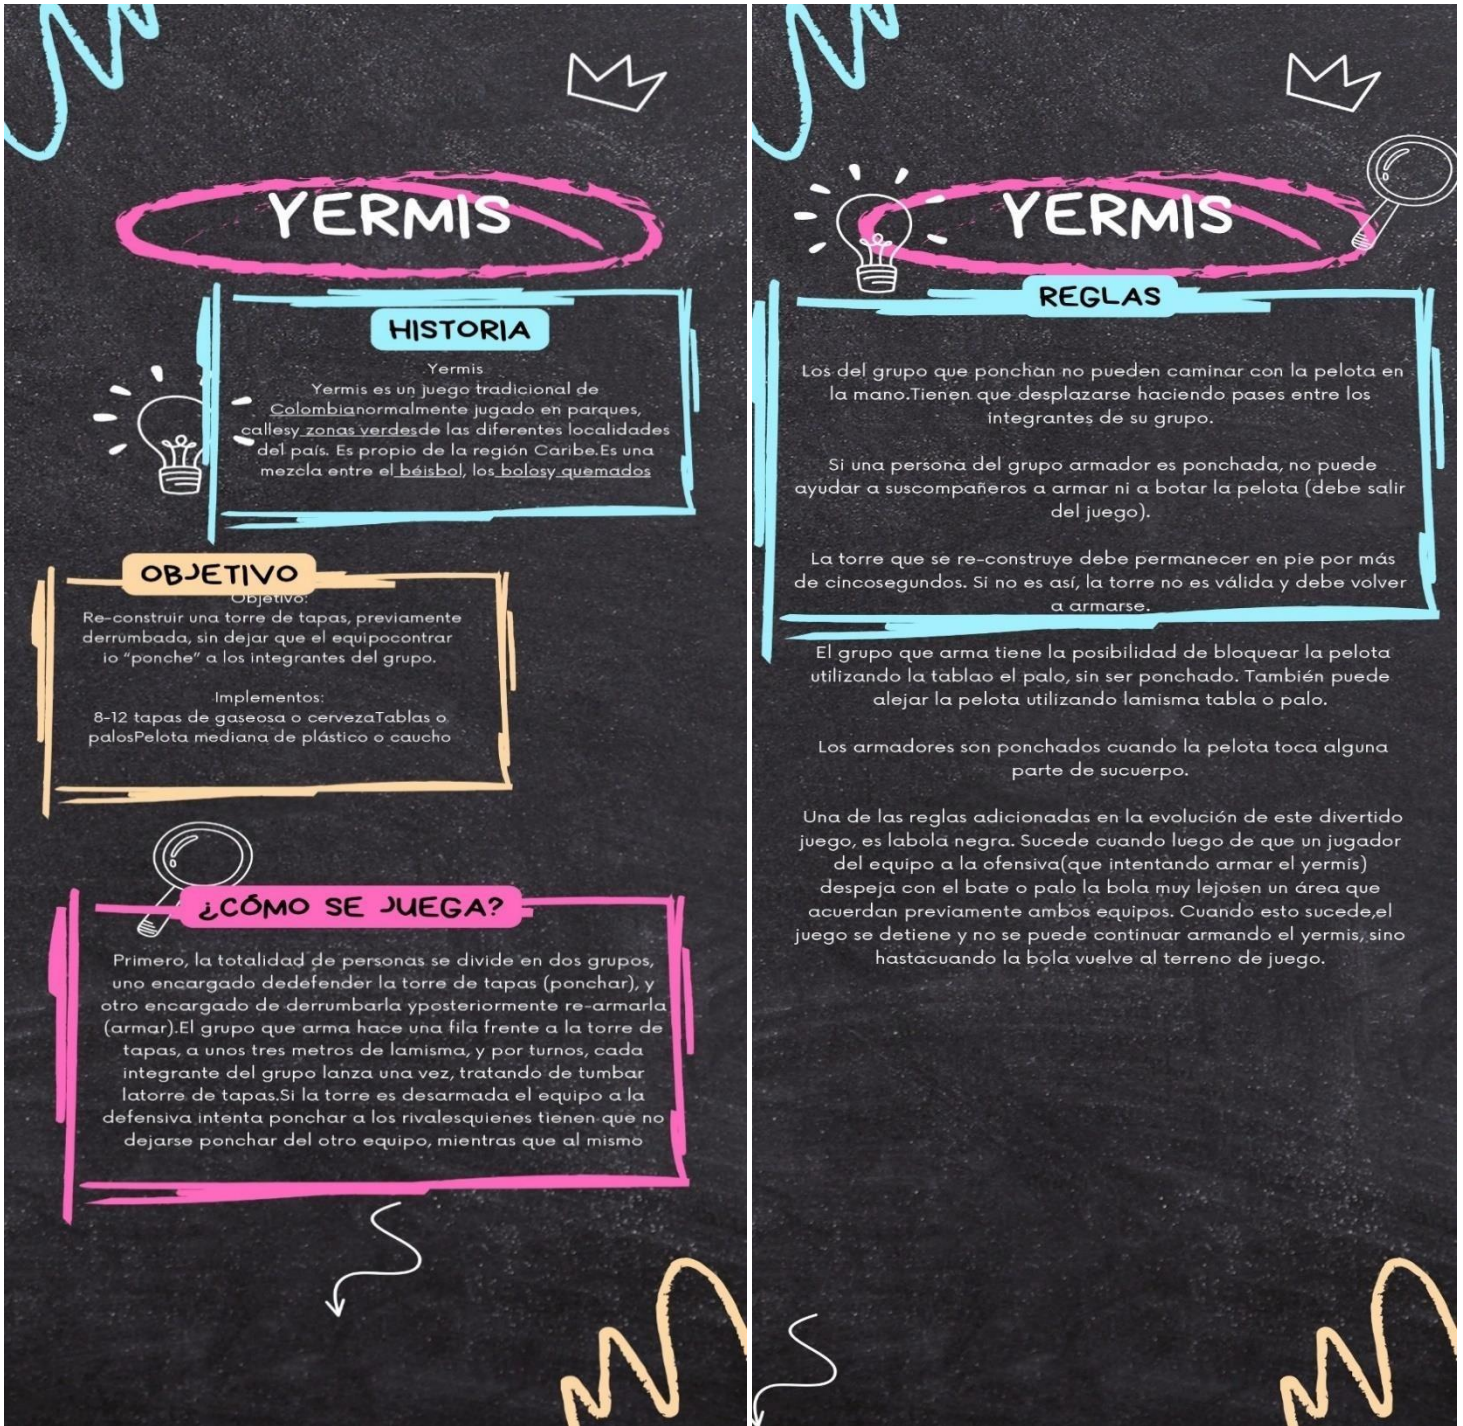 YERMIS
HISTORIA
Yermis
Yermis es un juego tradicional de
Colombianormalmente jugado en parques,
callesy zonas verdesde las diferentes localidades
del país. Es propio de la región Caribe.Es una
mezcla entre el béisbol, los bolosy quemados
OBJETIVO
Objetivo:
Re-construir una torre de tapas, previamente
derrumbada, sin dejar que el equipocontrar
io “ponche” a los integrantes del grupo.
Implementos:
8-12 tapas de gaseosa o cervezaTablas o
palosPelota mediana de plástico o caucho
¿CÓMO SE JUEGA?
Primero, la totalidad de personas se divide en dos grupos,
uno encargado dedefender la torre de tapas (ponchar), y
otro encargado de derrumbarla yposteriormente re-armarla
(armar).El grupo que arma hace una fila frente a la torre de
tapas, a unos tres metros de lamisma, y por turnos, cada
integrante del grupo lanza una vez, tratando de tumbar
latorre de tapas.Si la torre es desarmada el equipo a la
defensiva intenta ponchar a los rivalesquienes tienen que no
dejarse ponchar del otro equipo, mientras que al mismo
YERMIS
REGLAS
Los del grupo que ponchan no pueden caminar con la pelota en
la mano.Tienen que desplazarse haciendo pases entre los
integrantes de su grupo.
Si una persona del grupo armador es ponchada, no puede
ayudar a suscompañeros a armar ni a botar la pelota (debe salir
del juego).
La torre que se re-construye debe permanecer en pie por más
de cincosegundos. Si no es así, la torre no es válida y debe volver
a armarse.
El grupo que arma tiene la posibilidad de bloquear la pelota
utilizando la tablao el palo, sin ser ponchado. También puede
alejar la pelota utilizando lamisma tabla o palo.
Los armadores son ponchados cuando la pelota toca alguna
parte de sucuerpo.
Una de las reglas adicionadas en la evolución de este divertido
juego, es labola negra. Sucede cuando luego de que un jugador
del equipo a la ofensiva(que intentando armar el yermis)
despeja con el bate o palo la bola muy lejosen un área que
acuerdan previamente ambos equipos. Cuando esto sucede,el
juego se detiene y no se puede continuar armando el yermis, sino
hastacuando la bola vuelve al terreno de juego.